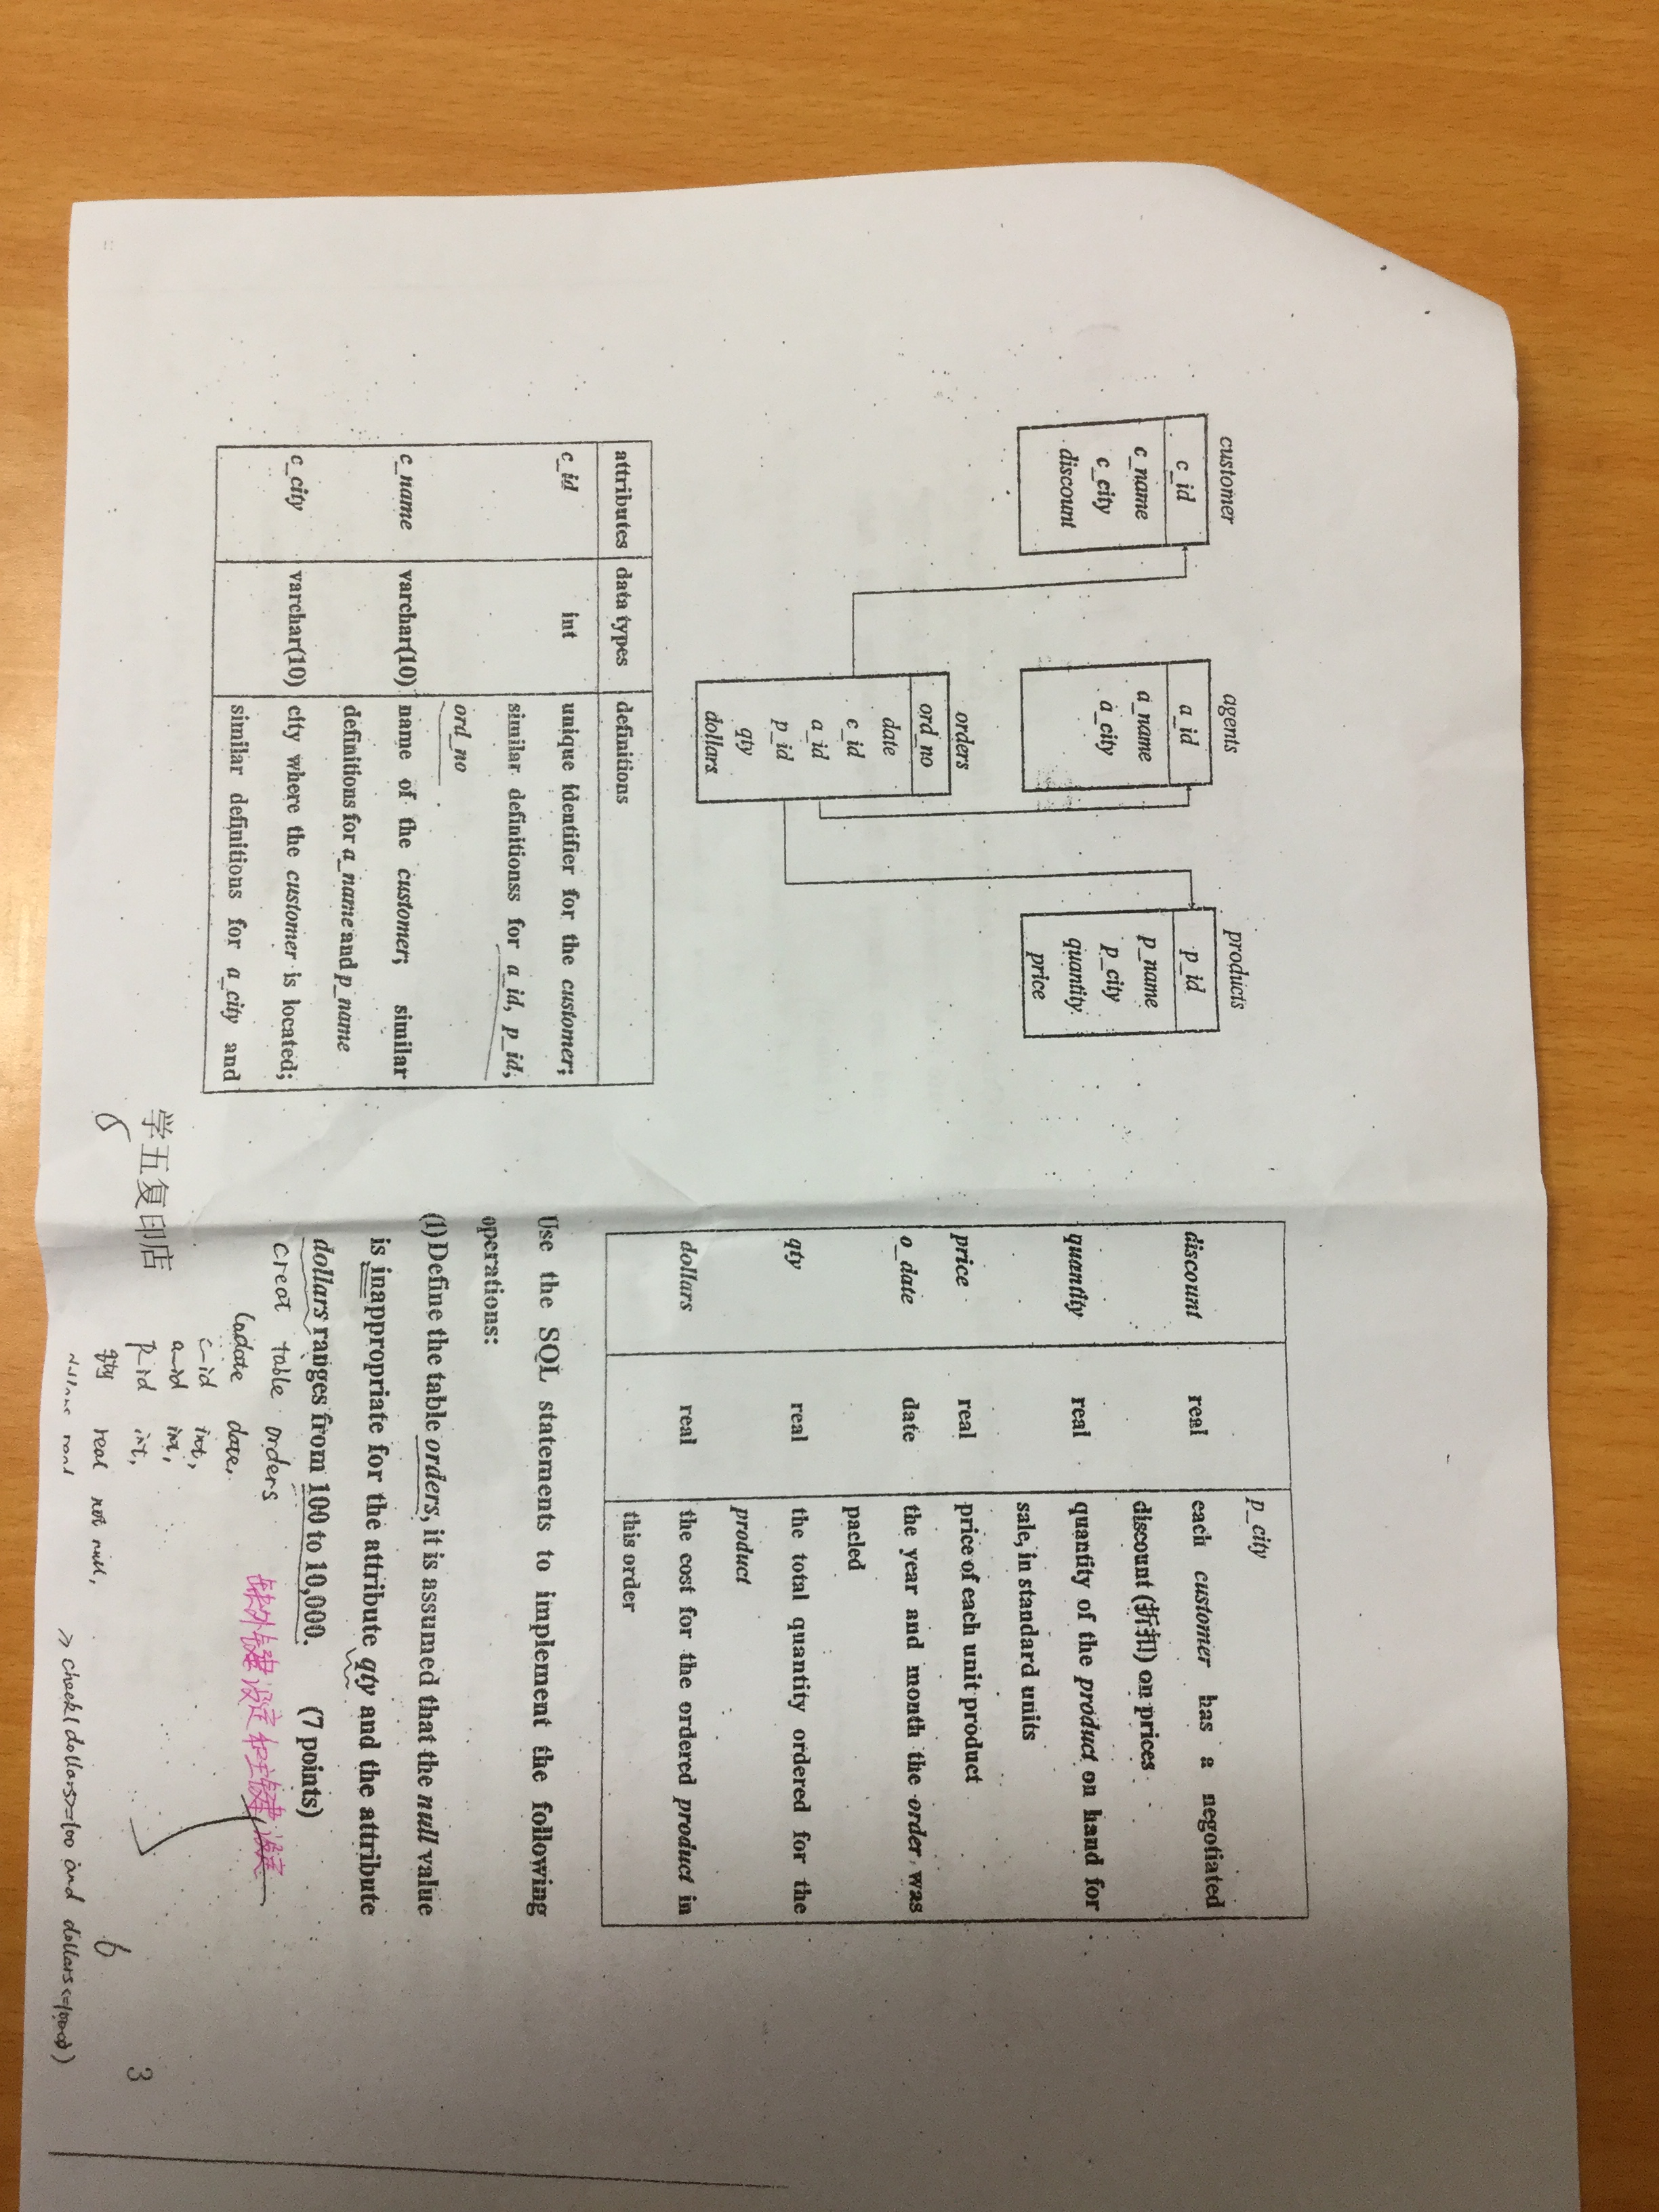 customer
c_id
c_name
c_city
discount
agents
a_id
a_name
a_city
products
p_id
p_name
p_city
quantity
price
orders
ord_no
date
c_id
a_id
p_id
qty
dollars
attributes data types definitions
c_id int unique identifier for the customer;
similar definitionss for a_id, p_id,
ord_no
c_name varchar(10) name of the customer; similar
definitions for a_name and p_name
c_city varchar(10) city where the customer is located;
similar definitions for a_city and
学五复印店
6
p_city
discount real each customer has a negotiated
discount (折扣) on prices
quantity real quantity of the product on hand for
sale, in standard units
price real price of each unit product
o_date date the year and month the order was
pacled
qty real the total quantity ordered for the
product
dollars real the cost for the ordered product in
this order
Use the SQL statements to implement the following
operations:
(1) Define the table orders, it is assumed that the null value
is inappropriate for the attribute qty and the attribute
dollars ranges from 100 to 10,000. (7 points)
creat table orders
缺外键设定和主键设定
date,
c_id int,
a_id int,
p_id int,
qty real not null,
dollars real
check(dollars>=100 and dollars<=10000)
6
3